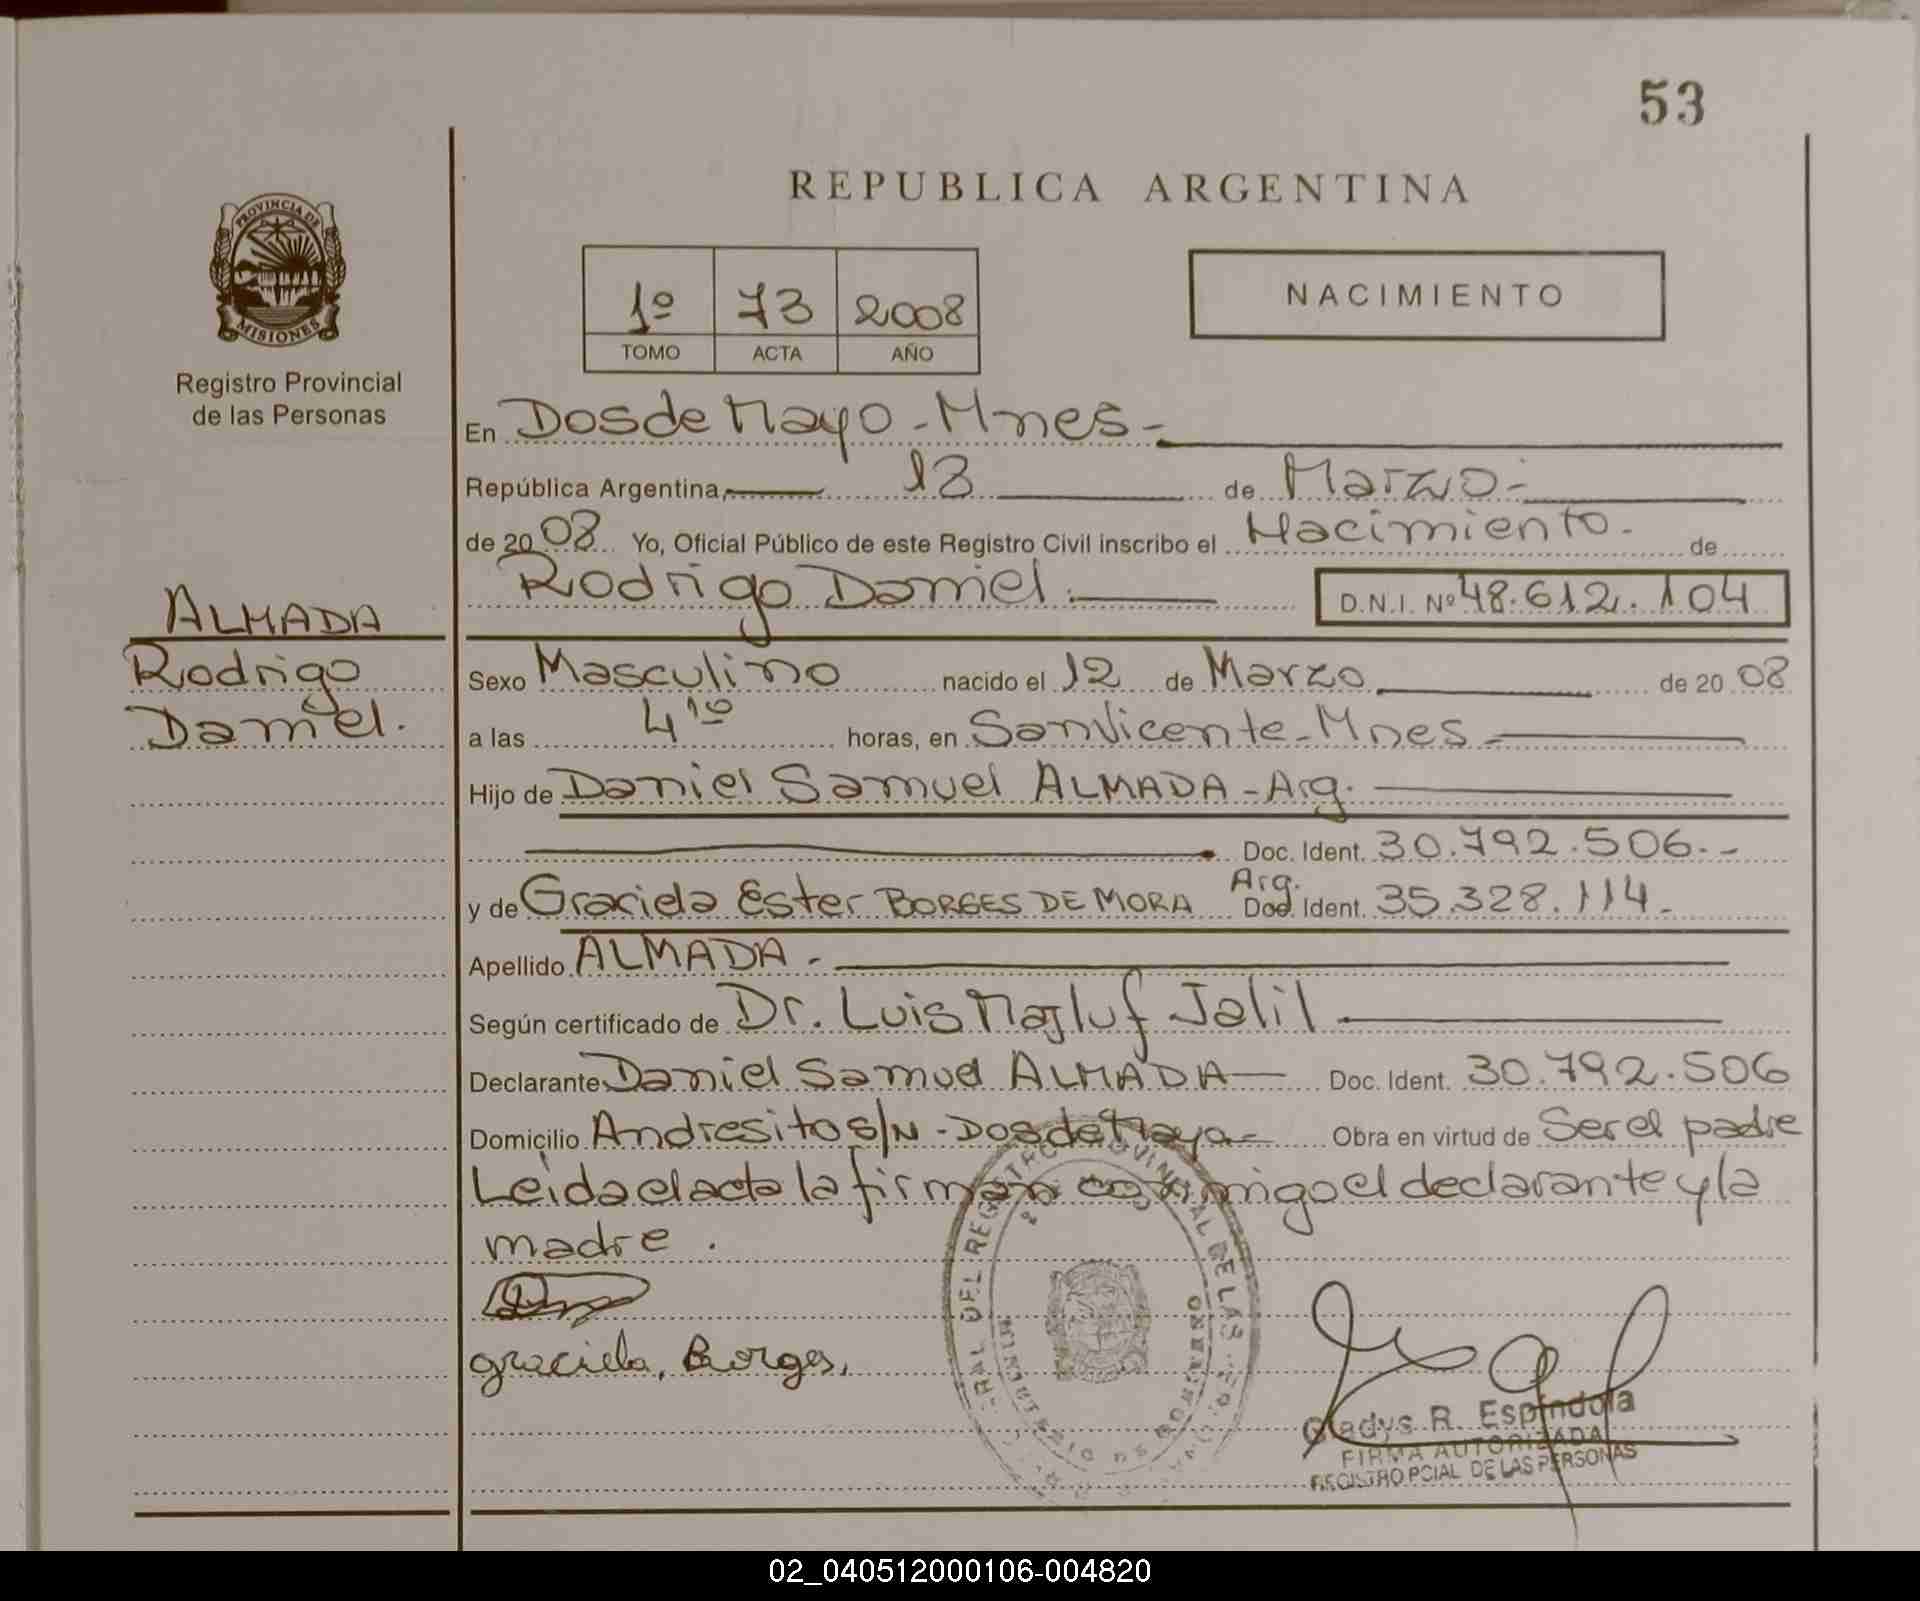 53
REPUBLICA ARGENTINA
PROVINCIA DE
MISIONES
Registro Provincial
de las Personas
1º 73 2008
TOMO ACTA AÑO
NACIMIENTO
En Dos de Mayo - Mnes -
República Argentina, 13 de Marzo -
de 20 08 Yo, Oficial Público de este Registro Civil inscribo el Nacimiento - de
Rodrigo Daniel. D.N.I. Nº 48.612.104
ALMADA
Rodrigo
Daniel.
Sexo Masculino nacido el 12 de Marzo de 20 08
a las 4 10 horas, en San Vicente - Mnes -
Hijo de Daniel Samuel ALMADA - Arg.
Doc. Ident. 30.792.506.-
y de Graciela Ester BORGES DE MORA Arg. Doc. Ident. 35.328.114.
Apellido ALMADA -
Según certificado de Dr. Luis Majluf Jalil
Declarante Daniel Samuel ALMADA Doc. Ident. 30.792.506
Domicilio Andresito S/N - Dos de Mayo - Obra en virtud de Ser el padre
Leída el acta la firman conmigo el declarante y la
madre.
graciela, Borges,
DEL REGISTRO PROVINCIAL DE LAS
MINISTERIO DE GOBIERNO
Gladys R. Espíndola
FIRMA AUTORIZADA
REGISTRO PCIAL DE LAS PERSONAS
02_040512000106-004820